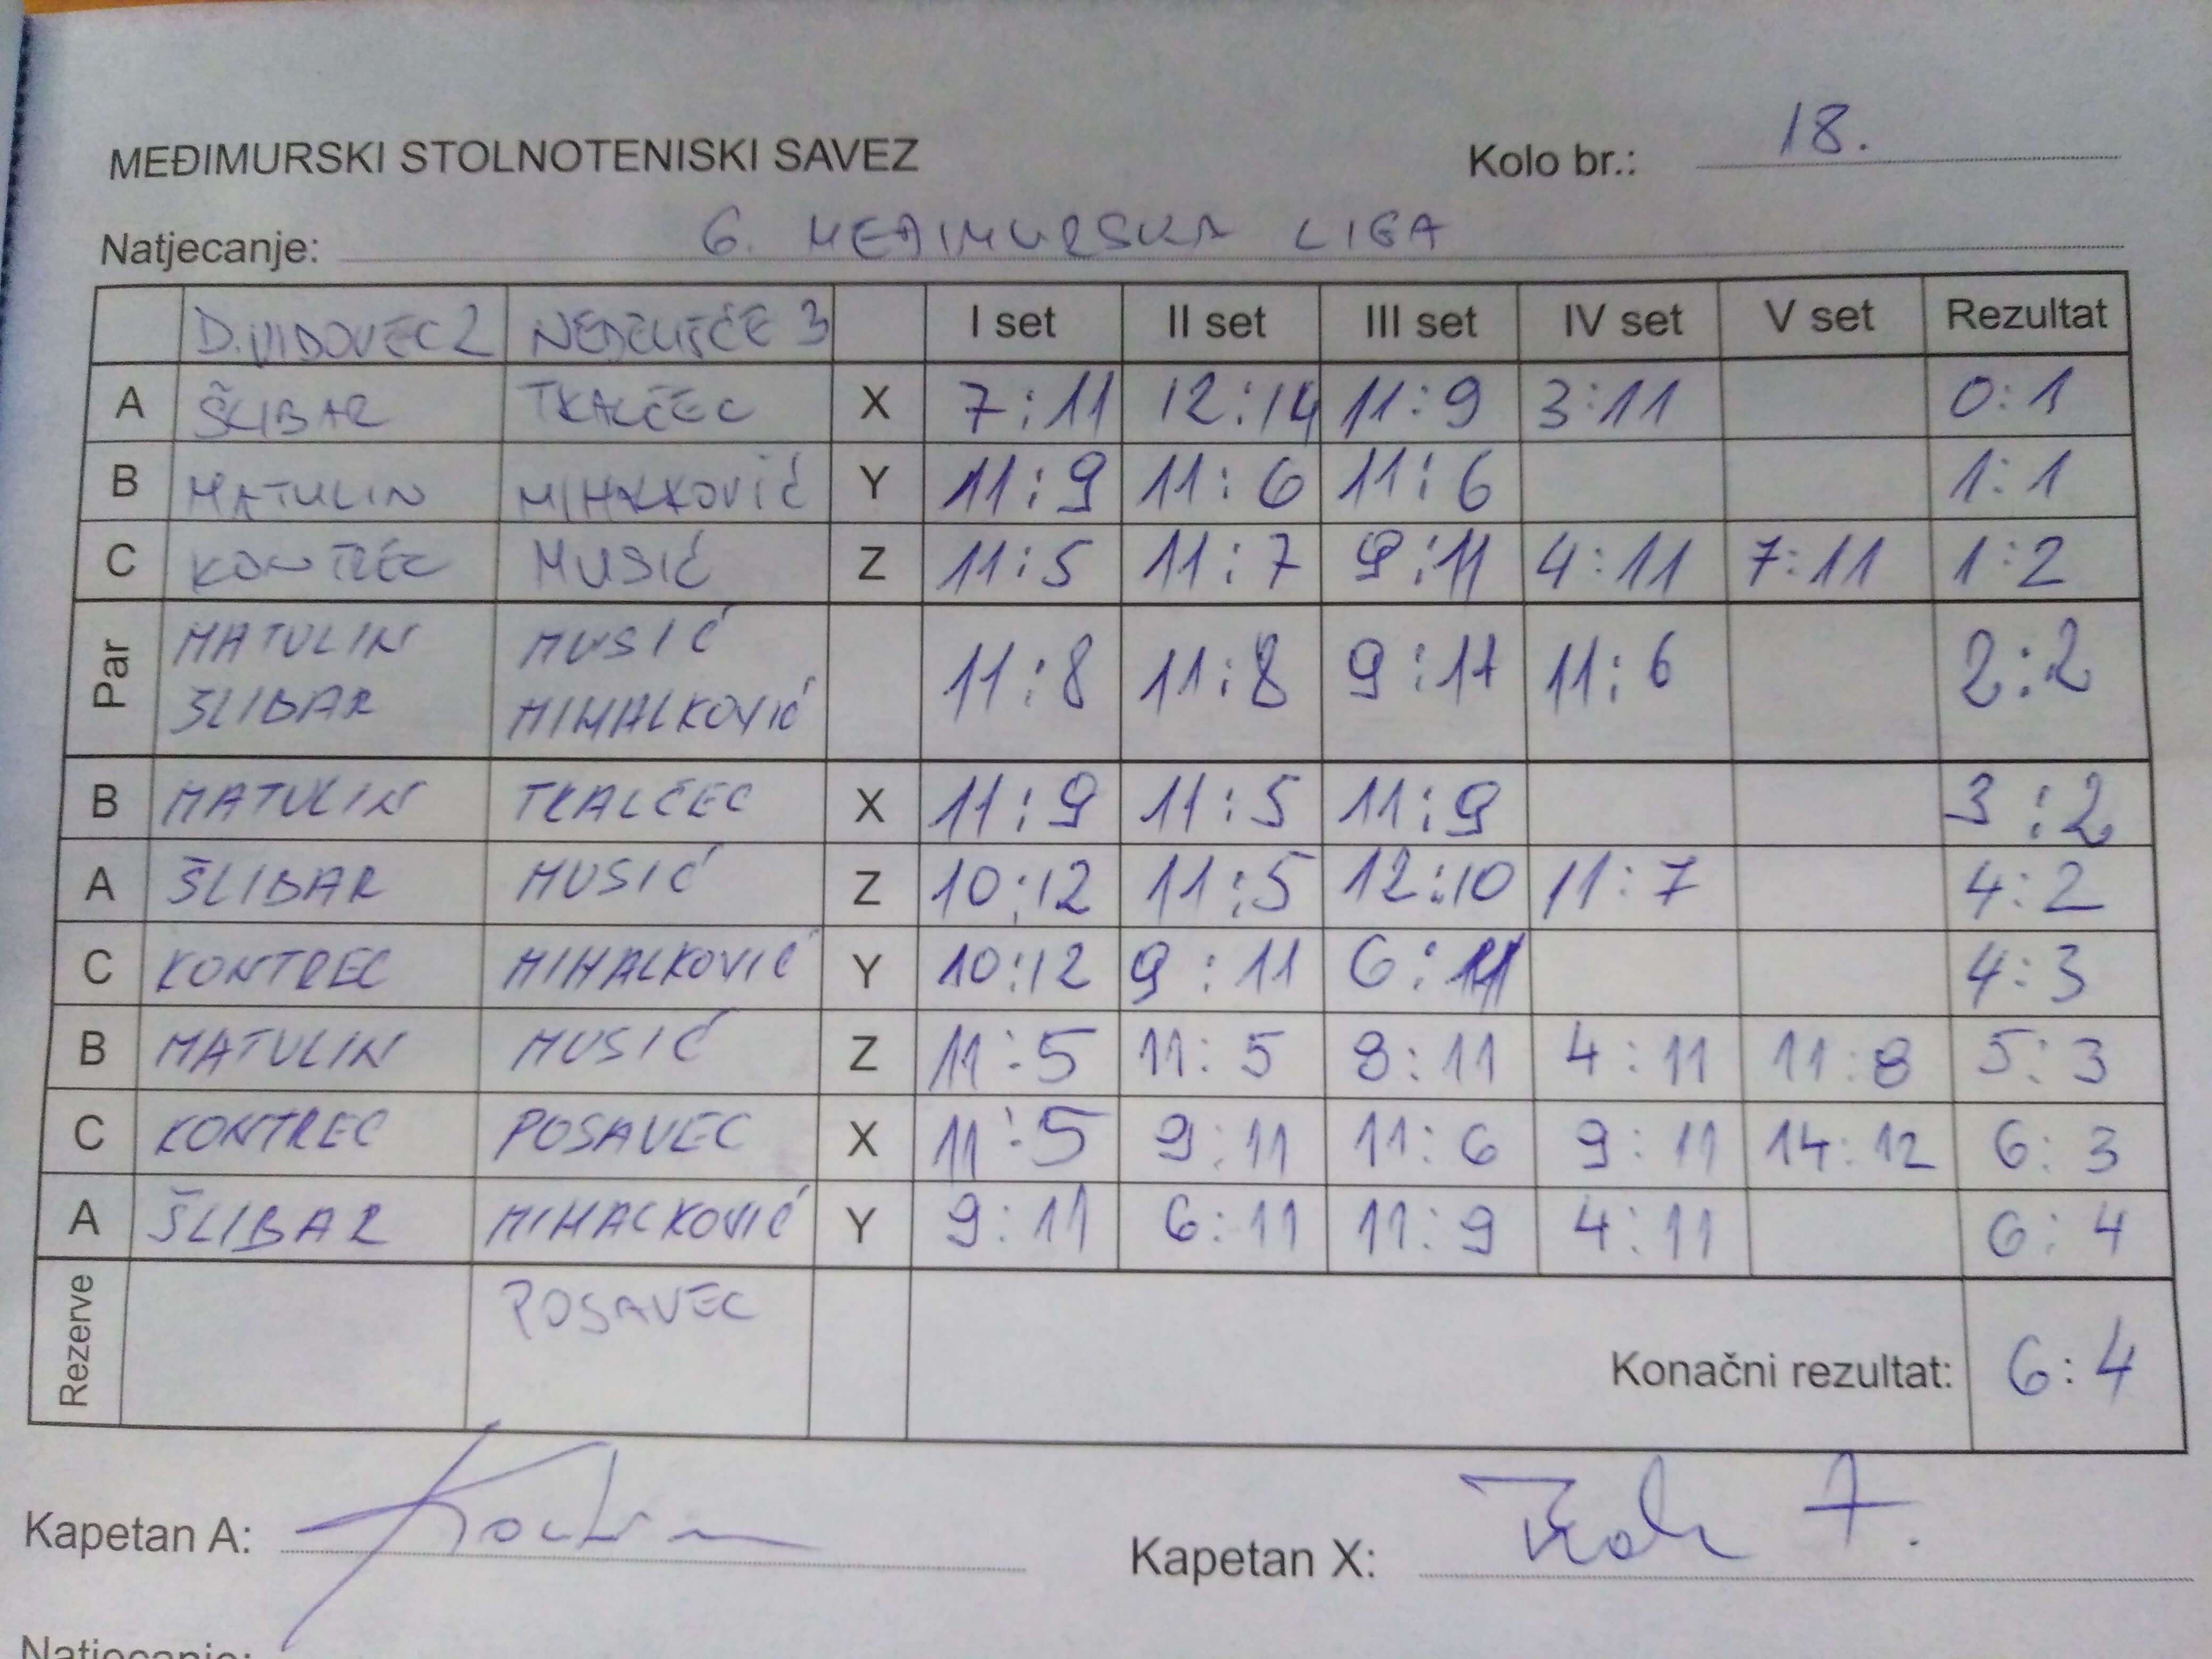 MEĐIMURSKI STOLNOTENISKI SAVEZ Kolo br.: 18.
Natjecanje: 6. MEĐIMURSKA LIGA
D.VIDOVEC 2 NEDELIŠĆE 3 I set II set III set IV set V set Rezultat
A ŠLIBAR TKALČEC X 7:11 12:14 11:9 3:11 0:1
B MATULIN MIHALKOVIĆ Y 11:9 11:6 11:6 1:1
C KONTREC MUSIĆ Z 11:5 11:7 9:11 4:11 7:11 1:2
Par MATULIN MUSIĆ 11:8 11:8 9:11 11:6 2:2
ŠLIBAR MIHALKOVIĆ
B MATULIN TKALČEC X 11:9 11:5 11:9 3:2
A ŠLIBAR MUSIĆ Z 10:12 11:5 12:10 11:7 4:2
C KONTREC MIHALKOVIĆ Y 10:12 9:11 6:11 4:3
B MATULIN MUSIĆ Z 11:5 11:5 8:11 4:11 11:8 5:3
C KONTREC POSAVEC X 11:5 9:11 11:6 9:11 14:12 6:3
A ŠLIBAR MIHALKOVIĆ Y 9:11 6:11 11:9 4:11 6:4
Rezerve POSAVEC
Konačni rezultat: 6:4
Kapetan A: Kapetan X:
Natjecanje: